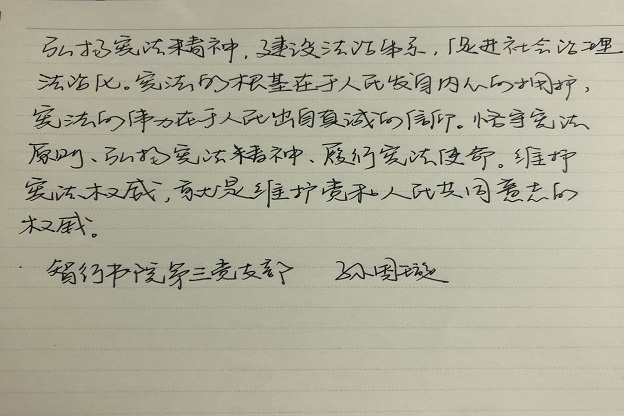 弘扬宪法精神，建设法治体系，促进社会治理
法治化。宪法的根基在于人民发自内心的拥护，
宪法的伟力在于人民出自真诚的信仰。恪守宪法
原则、弘扬宪法精神、履行宪法使命。维护
宪法权威，就是维护党和人民共同意志的
权威。
智行书院第三党支部 孙周璇